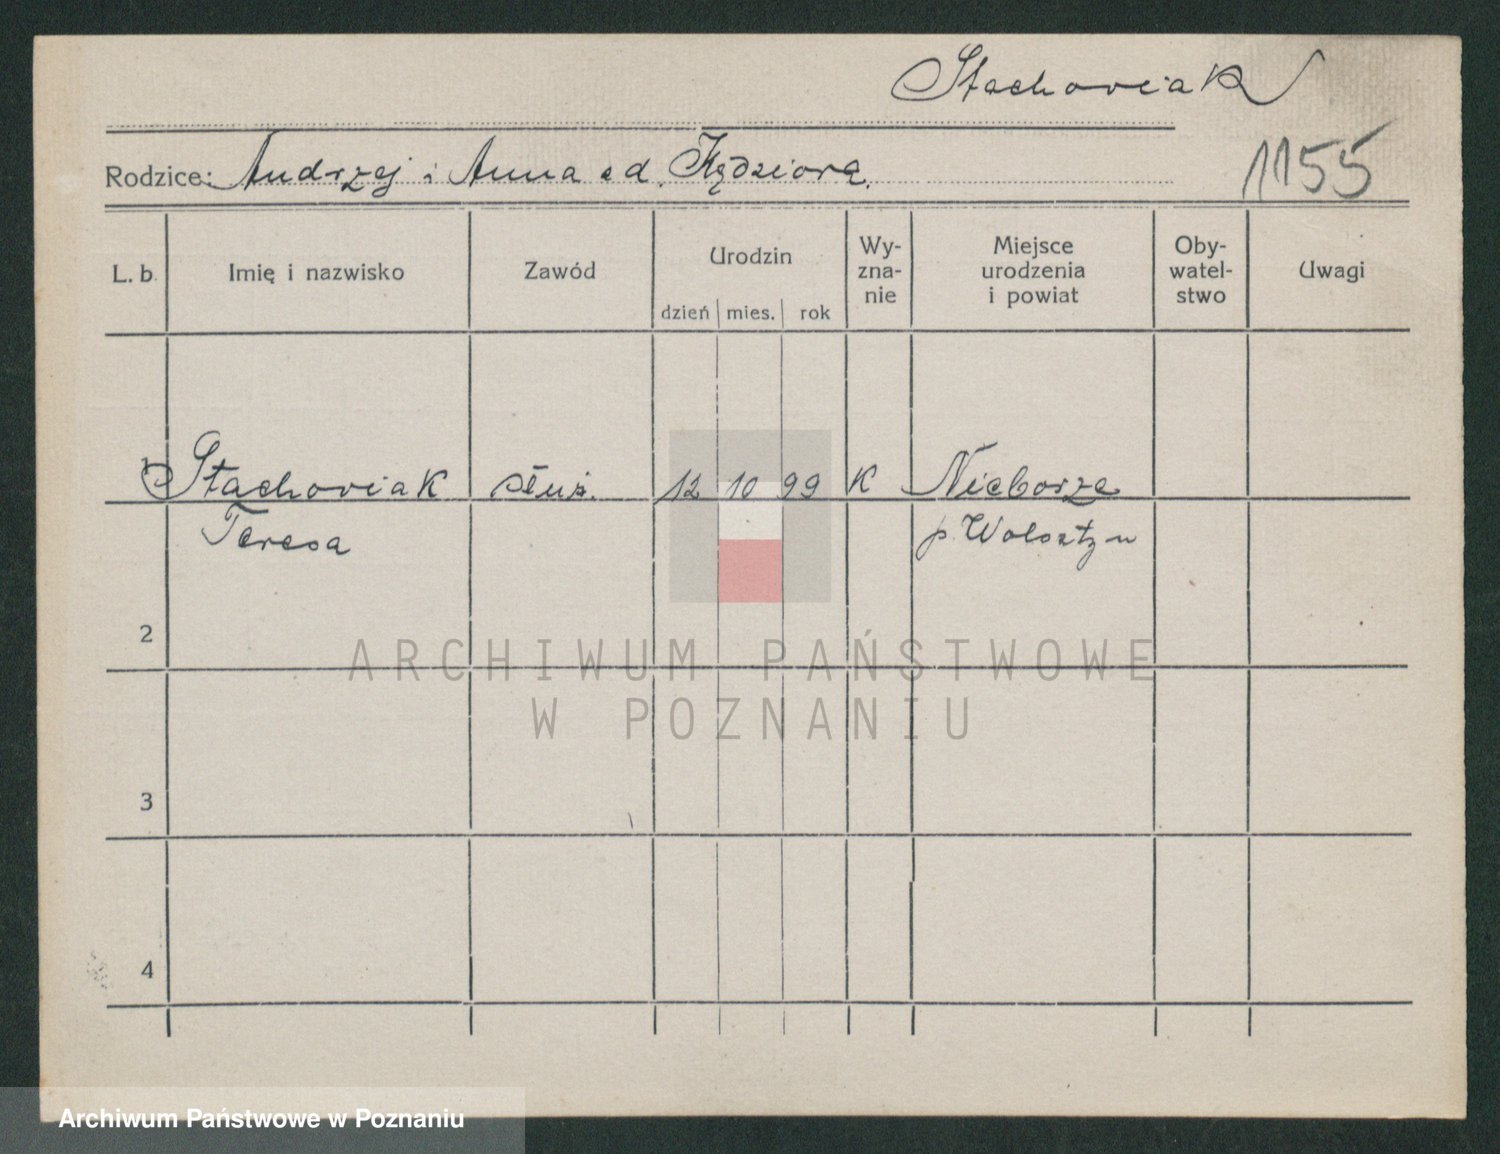 Stachoviak
Rodzice: Andrzej i Anna z d. Kędziora.
1155
L. b. Imię i nazwisko Zawód Urodzin Wy-zna-nie Miejsce urodzenia i powiat Oby-watel-stwo Uwagi
dzień mies. rok
1 Stachoviak służ. 12 10 99 K Nieborze
Teresa p. Wolsztyn
2
3
4
ARCHIWUM PAŃSTWOWE
W POZNANIU
Archiwum Państwowe w Poznaniu